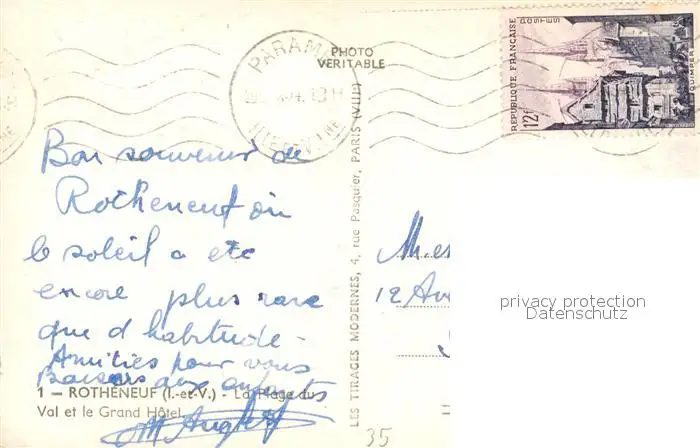 PHOTO
VERITABLE
PARAM
ILLE-ET-VILAINE
REPUBLIQUE FRANÇAISE
POSTES
12F
QUIMPER
Bon souvenir de
Rotheneuf où
le soleil a été
encore plus rare
que d'habitude -
Amitiés pour vous
Baisers aux enfants
1 - ROTHÉNEUF (I.-et-V.) - La Plage du
Val et le Grand Hôtel
LES TIRAGES MODERNES, 4, rue Pasquier, PARIS (VIIIe)
Mes
12 Av
privacy protection
Datenschutz
35